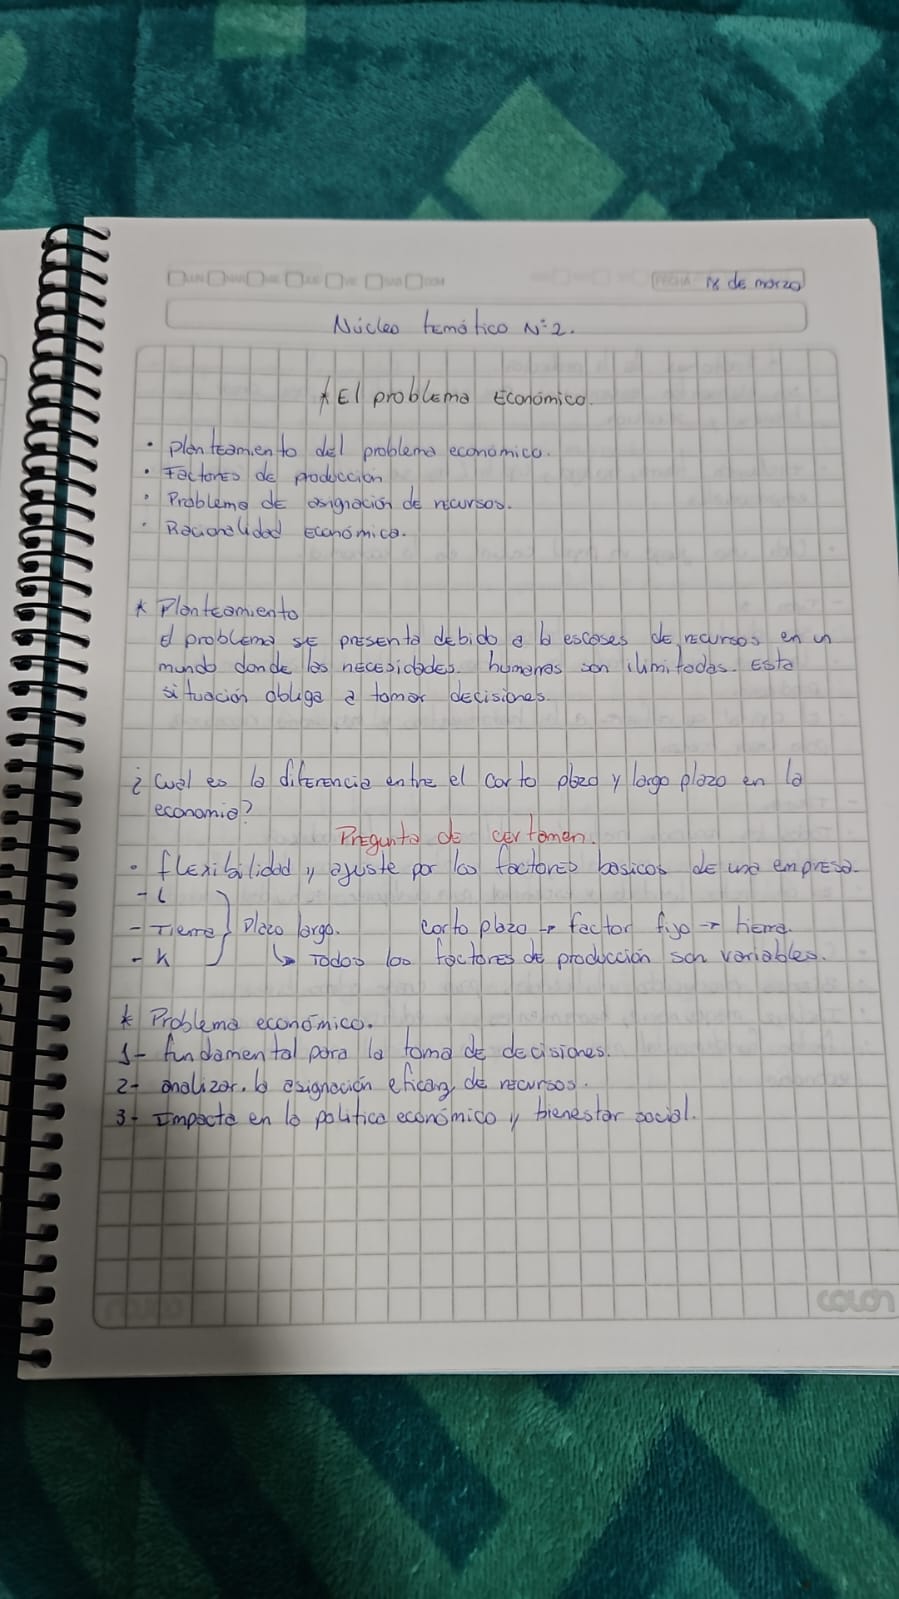 LUN MAR MIE JUE VIE SAB DOM FECHA 18 de marzo
Núcleo temático N°2.
* El problema Económico.
• Planteamiento del problema económico.
• Factores de producción
• Problema de asignación de recursos.
• Racionalidad Económica.
* Planteamiento
El problema se presenta debido a la escases de recursos en un
mundo donde las necesidades humanas son ilimitadas. Esta
situación obliga a tomar decisiones.
¿Cual es la diferencia entre el corto plazo y largo plazo en la
economia?
Pregunta de certamen.
• flexibilidad y ajuste por los factores basicos de una empresa.
- L
- Tierra } Plazo largo. corto plazo → factor fijo → tierra.
- K ↳ Todos los factores de producción son variables.
* Problema económico.
1- fundamental para la toma de decisiones.
2- analizar la asignación eficaz de recursos.
3- Impacta en la politica económico y bienestar social.
colón